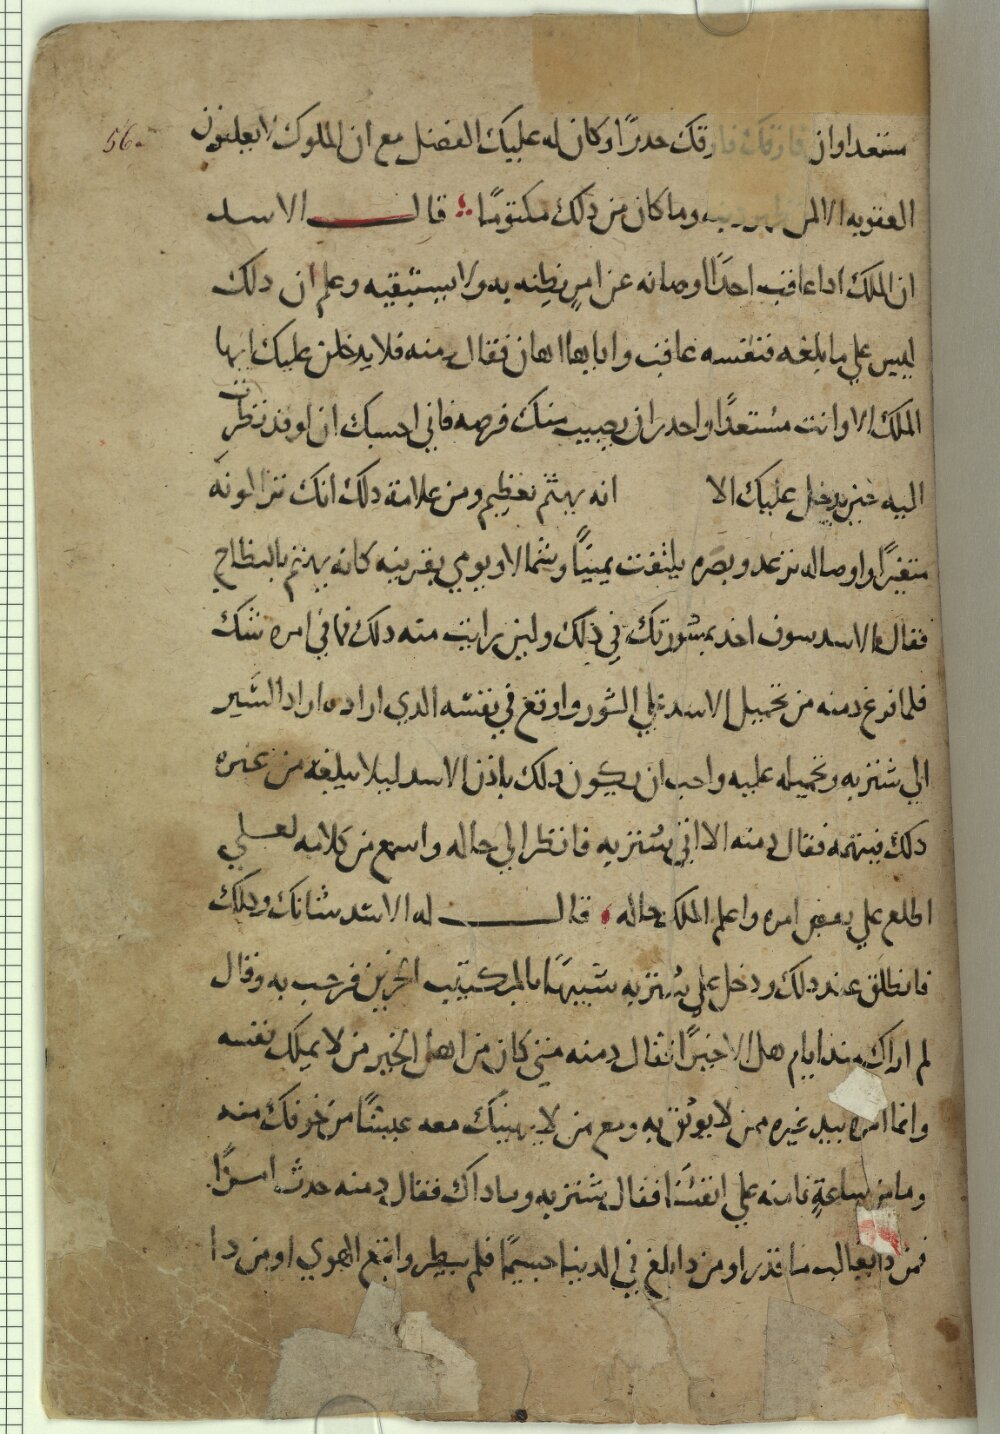 56
مستعدا وان فارقك فارقك حدرًا وكان له عليك الفضل مع ان الملوك لا يعلنون
العقوبه الا لمن ظهر دنبه وما كان من ذلك مكتومًا قال الاسد
ان الملك ادا عاقب احدًا او صانه عن امرٍ يظنه به ولا يستبقيه وعلم ان دلك
ليس على ما بلغه فنفسه عاقب واياها اهان فقال دمنه فلا يدخلن عليك ايها
الملك الا وانت مستعدًا واحدر ان يصيب منك فرصه فاني احسبك ان لو قد نظرت
اليه حين يدخل عليك الا انه يهتم بعظيم ومن علامة دلك انك ترا لونه
متغيرًا واوصاله ترتعد وبصره يلتفت يمينًا وشمالا ويومي بقرنيه كانه يهتم بالنطاح
فقال الاسد سوف اخد بمشورتك في ذلك ولين رايت منه دلك فما في امره شك
فلما فرغ دمنه من تحميل الاسد على الثور واوقع في نفسه الدي اراده اراد السير
الي شنزبه وتحميله عليه واحب ان يكون دلك باذن الاسد ليلا يبلغه من غيره
دلك فيتهمه فقال دمنه الا اتي شنزبه فانظر الي حاله واسمع من كلامه لعلي
اطلع علي بعض امره واعلم الملك حاله قال له الاسد شانك ودلك
فانطلق عند دلك ودخل علي شنزبه شبيهًا بالمكتيب الحزين فرحب به وقال
لم اراك مند ايام هل الا خيرًا فقال دمنه متي كان من اهل الخير من لا يملك نفسه
وانما امره بيد غيره ممن لا يوثق به ومع من لا يهنيك معه عيشًا من خوفك منه
وما من ساعةٍ نامنه علي انفسنا فقال شنزبه وماداك فقال دمنه حدث امرًا
فمن دا يغالب ما قدر او من دا بلغ في الدنيا جسيمًا فلم يبطر واتبع الهوي او من دا